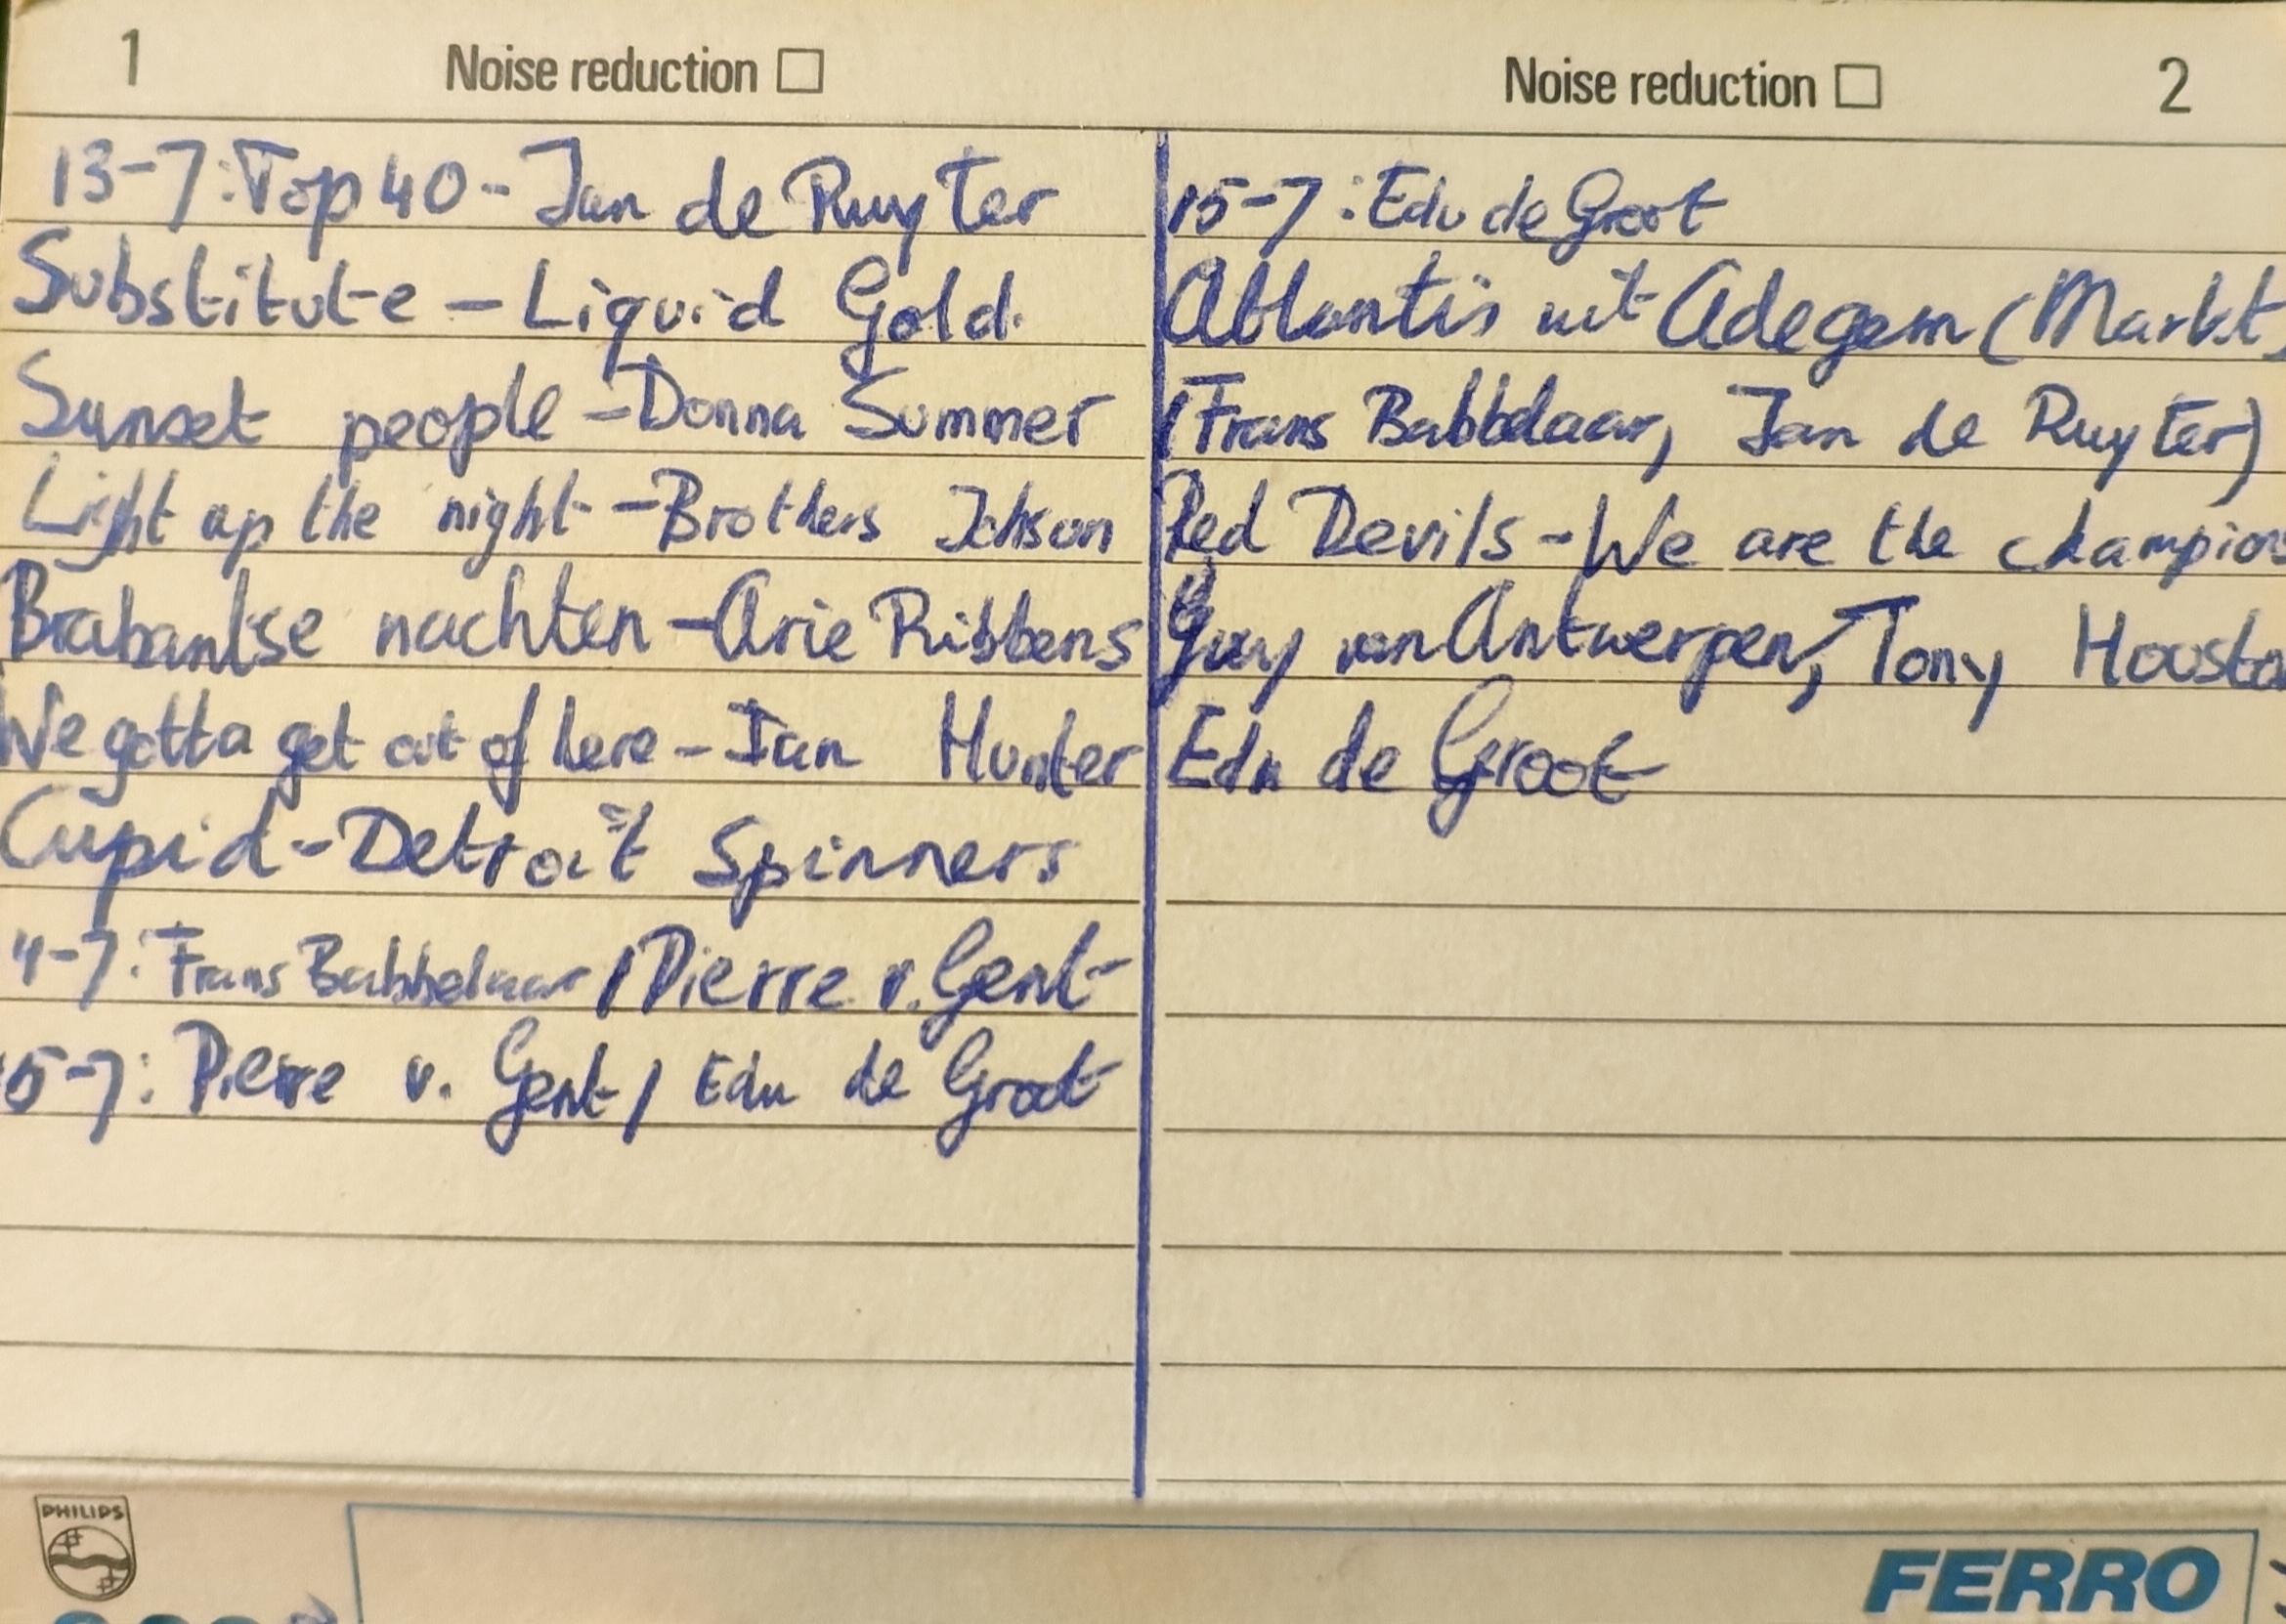 1 Noise reduction
Noise reduction 2
13-7: Top 40 - Jan de Ruyter
Substitute - Liquid Gold
Sunset people - Donna Summer
Light up the night - Brothers Johson
Brabantse nachten - Arie Ribbens
We gotta get out of here - Ian Hunter
Cupid - Detroit Spinners
4-7: Frans Babbelaar / Pierre v. Gent
5-7: Pierre v. Gent / Edu de Groot
15-7: Edu de Groot
Atlantis uit Adegem (Markt)
(Frans Babbelaar, Jan de Ruyter)
Red Devils - We are the champions
Guy van Antwerpen, Tony Housto
Edu de Groot
PHILIPS
FERRO